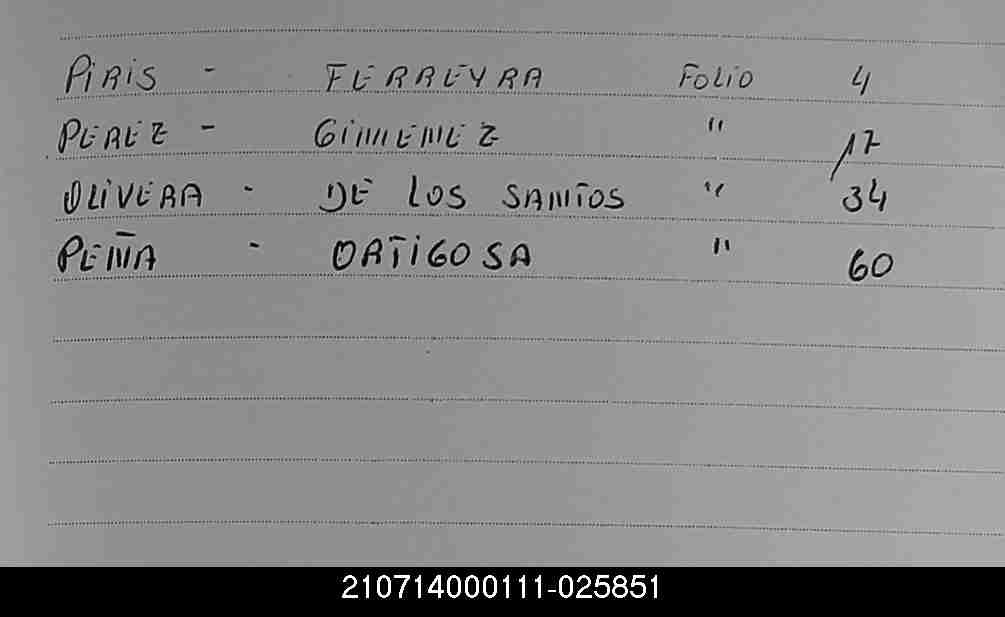 PIRIS - FERREYRA Folio 4
PEREZ - GIMENEZ " 17
OLIVERA - DE LOS SANTOS " 34
PEÑA - ORTIGOSA " 60
210714000111-025851